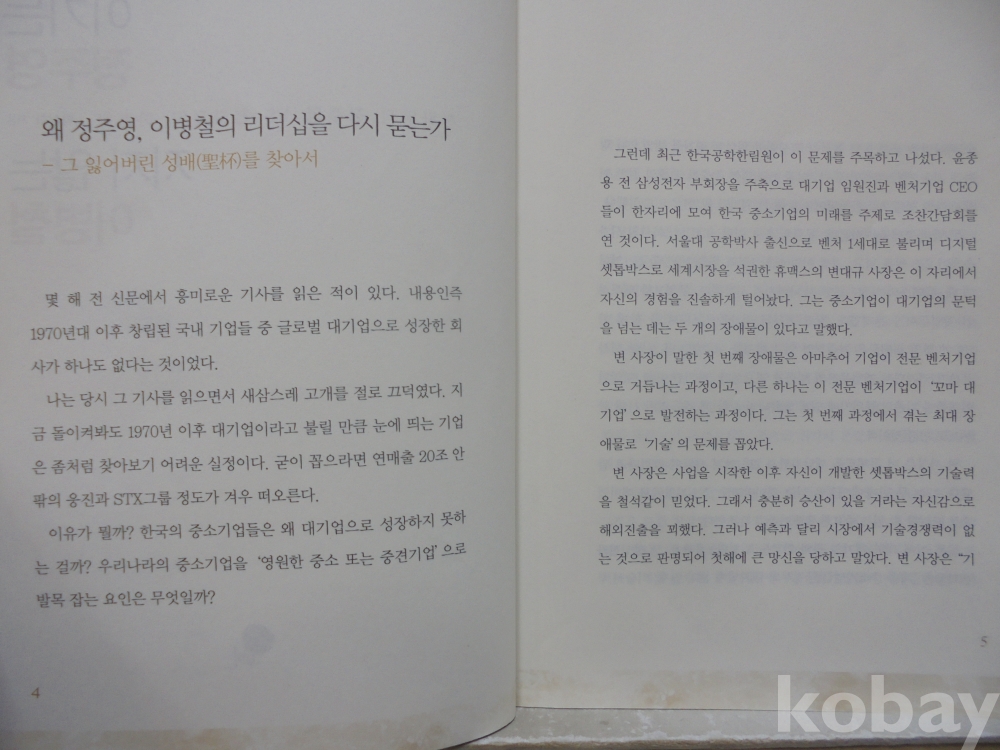 왜 정주영, 이병철의 리더십을 다시 묻는가
- 그 잃어버린 성배(聖杯)를 찾아서
몇 해 전 신문에서 흥미로운 기사를 읽은 적이 있다. 내용인즉
1970년대 이후 창립된 국내 기업들 중 글로벌 대기업으로 성장한 회
사가 하나도 없다는 것이었다.
나는 당시 그 기사를 읽으면서 새삼스레 고개를 절로 끄덕였다. 지
금 돌이켜봐도 1970년 이후 대기업이라고 불릴 만큼 눈에 띄는 기업
은 좀처럼 찾아보기 어려운 실정이다. 굳이 꼽으라면 연매출 20조 안
팎의 웅진과 STX그룹 정도가 겨우 떠오른다.
이유가 뭘까? 한국의 중소기업들은 왜 대기업으로 성장하지 못하
는 걸까? 우리나라의 중소기업을 ‘영원한 중소 또는 중견기업’으로
발목 잡는 요인은 무엇일까?
4
그런데 최근 한국공학한림원이 이 문제를 주목하고 나섰다. 윤종
용 전 삼성전자 부회장을 주축으로 대기업 임원진과 벤처기업 CEO
들이 한자리에 모여 한국 중소기업의 미래를 주제로 조찬간담회를
연 것이다. 서울대 공학박사 출신으로 벤처 1세대로 불리며 디지털
셋톱박스로 세계시장을 석권한 휴맥스의 변대규 사장은 이 자리에서
자신의 경험을 진솔하게 털어놨다. 그는 중소기업이 대기업의 문턱
을 넘는 데는 두 개의 장애물이 있다고 말했다.
변 사장이 말한 첫 번째 장애물은 아마추어 기업이 전문 벤처기업
으로 거듭나는 과정이고, 다른 하나는 이 전문 벤처기업이 ‘꼬마 대
기업’으로 발전하는 과정이다. 그는 첫 번째 과정에서 겪는 최대 장
애물로 ‘기술’의 문제를 꼽았다.
변 사장은 사업을 시작한 이후 자신이 개발한 셋톱박스의 기술력
을 철석같이 믿었다. 그래서 충분히 승산이 있을 거라는 자신감으로
해외진출을 꾀했다. 그러나 예측과 달리 시장에서 기술경쟁력이 없
는 것으로 판명되어 첫해에 큰 망신을 당하고 말았다. 변 사장은 “기
5
kobay